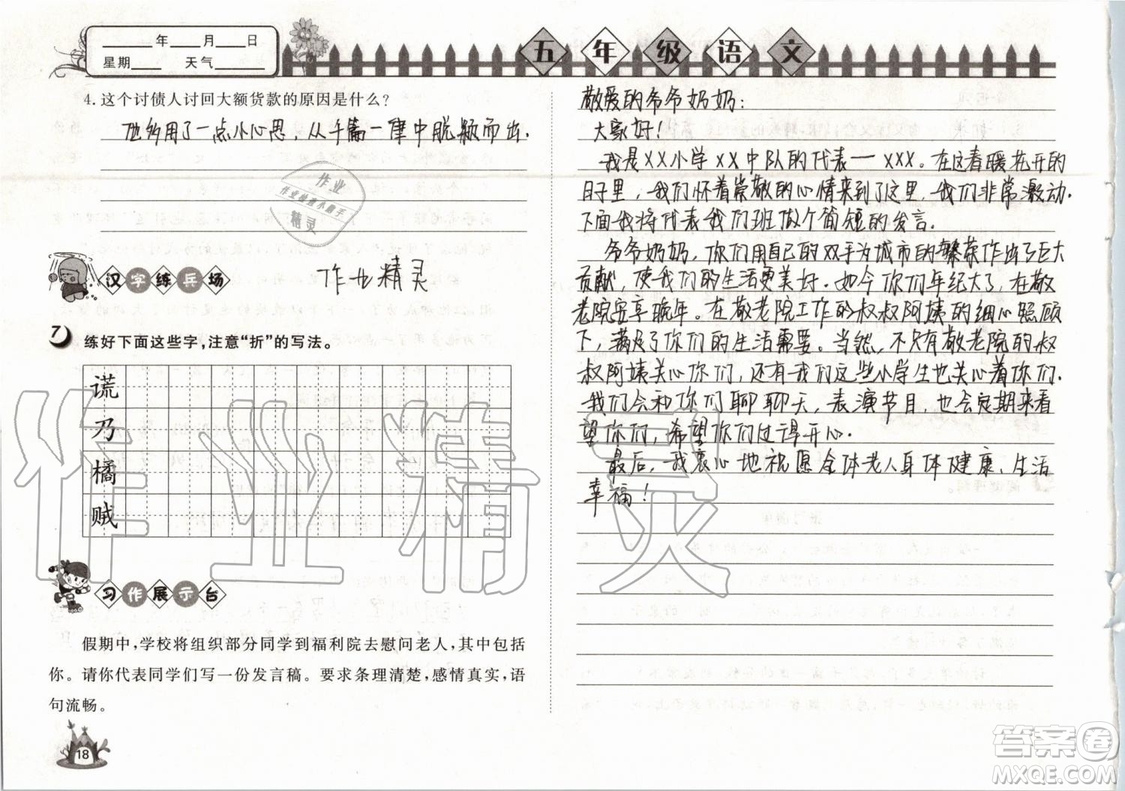 年 月 日
星期 天气
五年级语文
4. 这个讨债人讨回大额货款的原因是什么?
他多用了一点小心思，从千篇一律中脱颖而出。
作业
作业检查小助手
精灵
汉字练兵场
作业精灵
7 练好下面这些字,注意“折”的写法。
谎
乃
橘
贼
作业精灵
习作展示台
假期中,学校将组织部分同学到福利院去慰问老人,其中包括
你。请你代表同学们写一份发言稿。要求条理清楚,感情真实,语
句流畅。
18
敬爱的爷爷奶奶：
大家好！
我是XX小学XX中队的代表一XXX。在这春暖花开的
日子里，我们怀着崇敬的心情来到了这里，我们非常激动.
下面我将代表我们班做个简短的发言.
爷爷奶奶，你们用自己的双手为城市的繁荣作出了巨大
贡献，使我们的生活更美好.如今你们年纪大了，在敬
老院安享晚年。在敬老院工作的叔叔阿姨的细心照顾
下，满足了你们的生活需要。当然，不只有敬老院的叔
叔阿姨关心你们，还有我们这些小学生也关心着你们.
我们会和你们聊聊天，表演节目，也会定期来看
望你们，希望你们过得开心.
最后，我衷心地祝愿全体老人身体健康、生活
幸福！
答案圈
MXQE.COM